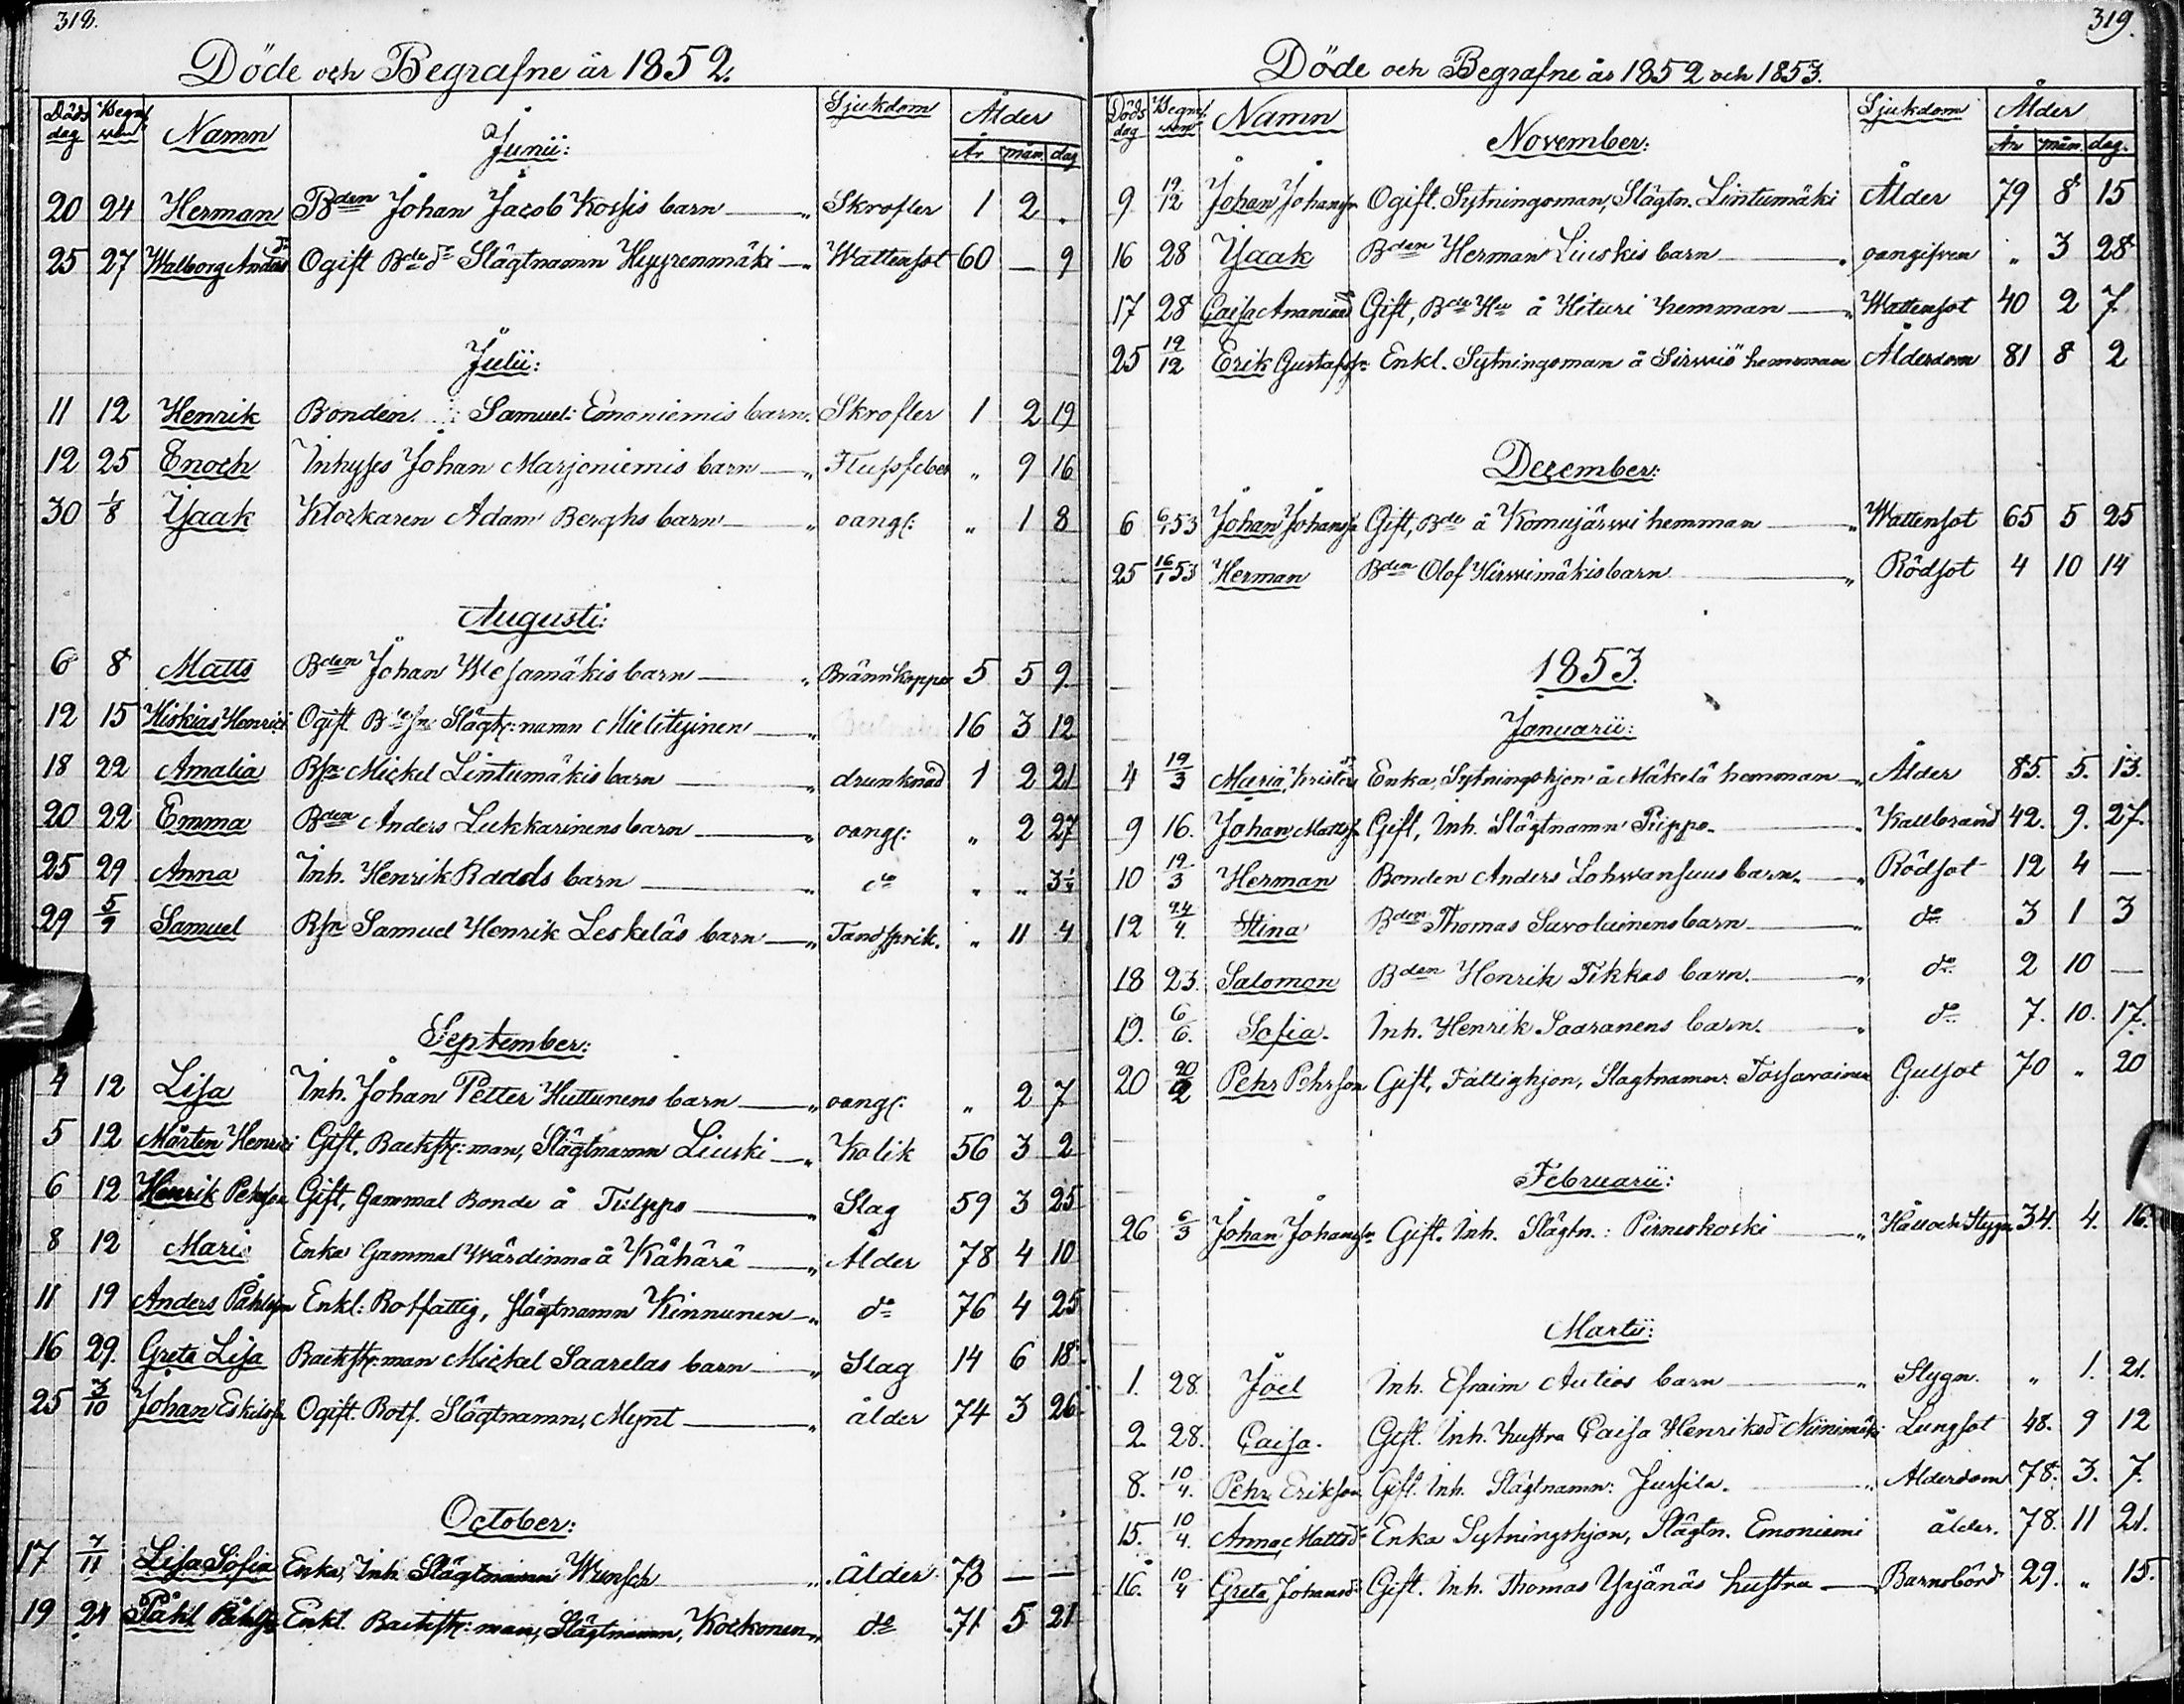 318.
Döde och Begrafne år 1852.
Döds dag Begraf ven Namn Sjukdom Ålder
År mån. dag
Junii:
20 24 Herman Bden Johan Jacob Kossis barn — „ Skrofler 1 2 „
25 27 Walborg Andersdr Ogift Bde dr Slägtnamn Hyyrenmäki — „ Wattensot 60 — 9
Julii:
11 12 Henrik Bonden Samuel Emoniemis barn. Skrofler 1 2 19
12 25 Enoch Inhyses Johan Marjoniemis barn — „ Flussfeber „ 9 16
30 1/8 Isaak Klockaren Adam Berghs barn — „ oangf: „ 1 8
Augusti:
6 8 Matts Bden Johan Wesamäkis barn — „ Brännkoppor 5 5 9
12 15 Hiskias Henrici Ogift Bdesn Slägts:namn Mieletyinen — „ 16 3 12
18 22 Amalia Bsn Mickel Lintumäkis barn — „ drunknad 1 2 21
20 22 Emma Bden Anders Lukkarinens barn — „ oangf: „ 2 27
25 29 Anna Inh. Henrik Raads barn — „ do „ „ 3 1/4
29 5/9 Samuel Bsn Samuel Henrik Leskeläs barn — „ Tandsprik. „ 11 4
September:
4 12 Lisa Inh. Johan Petter Huttunens barn — „ oangf: „ 2 7
5 12 Mårten Henrici Gift. Backst:man, Slägtnamn Liuski — „ Kolik 56 3 2
6 12 Henrik Pehrson Gift, Gammal Bonde å Tulppo — „ Slag 59 3 25
8 12 Maria Enka Gammal Wärdinna å Kähärä — „ Ålder 78 4 10
11 19 Anders Påhlsson Enkl: Rotfattig, slägtnamn Kinnunen — „ do 76 4 25
16 29. Greta Lisa Backst:man Mickel Saarelas barn — „ Slag 14 6 18
25 3/10 Johan Eskilsson Ogift. Rotf. Slägtnamn, Mynt — „ ålder 74 3 26
October:
17 7/11 Lisa Sofia Enka, Inh Slägtnamn Wunsch „ ålder 73 — —
19 24 Påhl Påhlsson Enkl. Backst:man, Slägtnamn, Kockonen „ do 71 5 21
319.
Döde och Begrafne år 1852 och 1853.
Döds dag Begraf ven Namn Sjukdom Ålder
År mån. dag.
November:
9 12/12 Johan Johansson Ogift. Sytningsman, Slägtn. Lintumäki Ålder 79 8 15
16 28 Isaak Bden Herman Liuskis barn — „ oangifven „ 3 28
17 28 Caisa Ananiaedr Gift, Bde Hu å Hituri hemman — „ Wattensot 40 2 7
25 12/12 Erik Gustafsson Enkl. Sytningsman å Sirwiö hemman Ålderdom 81 8 2
December:
6 6/1 53 Johan Johansson Gift, Bde å Komujärwi hemman — „ Wattensot 65 5 25
25 16/1 53 Herman Bden Olof Hirwimäkis barn — „ Rödsot 4 10 14
1853.
Januarii:
4 19/3 Maria Kristersdr Enka, Sytningshjon å Mäkelä hemman — „ Ålder 85. 5. 13.
9 16. Johan Mattsson Gift, Inh. Slägtnamn Piippo. — „ Kallbrand 42. 9. 27.
10 12/3 Herman Bonden Anders Lohwansuus barn. — „ Rödsot 12 4 —
12 24/4. Stina Bden Thomas Savolainens barn — „ do 3 1 3
18 23. Salomon Bden Henrik Tikkas barn. — „ do 2 10 —
19. 6/6. Sofia. Inh. Henrik Saaranens barn. — „ do 7. 10. 17.
20 20/2 Pehr Pehrson Gift, Fattighjon, Slagtnamn: Tossavainen Gulsot 70 „ 20
Februarii:
26 6/3 Johan Johansson Gift. Inh. Slägtn.: Pirneskoski — „ Håll och Stygn 34. 4. 16.
Martii:
1. 28. Joel Inh. Efraim Autios barn — „ Stygn. „ 1. 21.
2. 28. Caisa. Gift. Inh. hustru Caisa Henriksdr Niinimäki Lungsot 48. 9 12
8. 10/4. Pehr Erikson Gift. Inh. Slägtnamn: Jussila. „ Ålderdom 78. 3. 7.
15. 10/4. Anna Mattsdr Enka Sytningshjon, Slägtn. Emoniemi ålder. 78. 11 21.
16. 10/4 Greta Johansdr Gift. Inh. Thomas Yrjänäs hustru — Barnsbörd 29. „ 15.